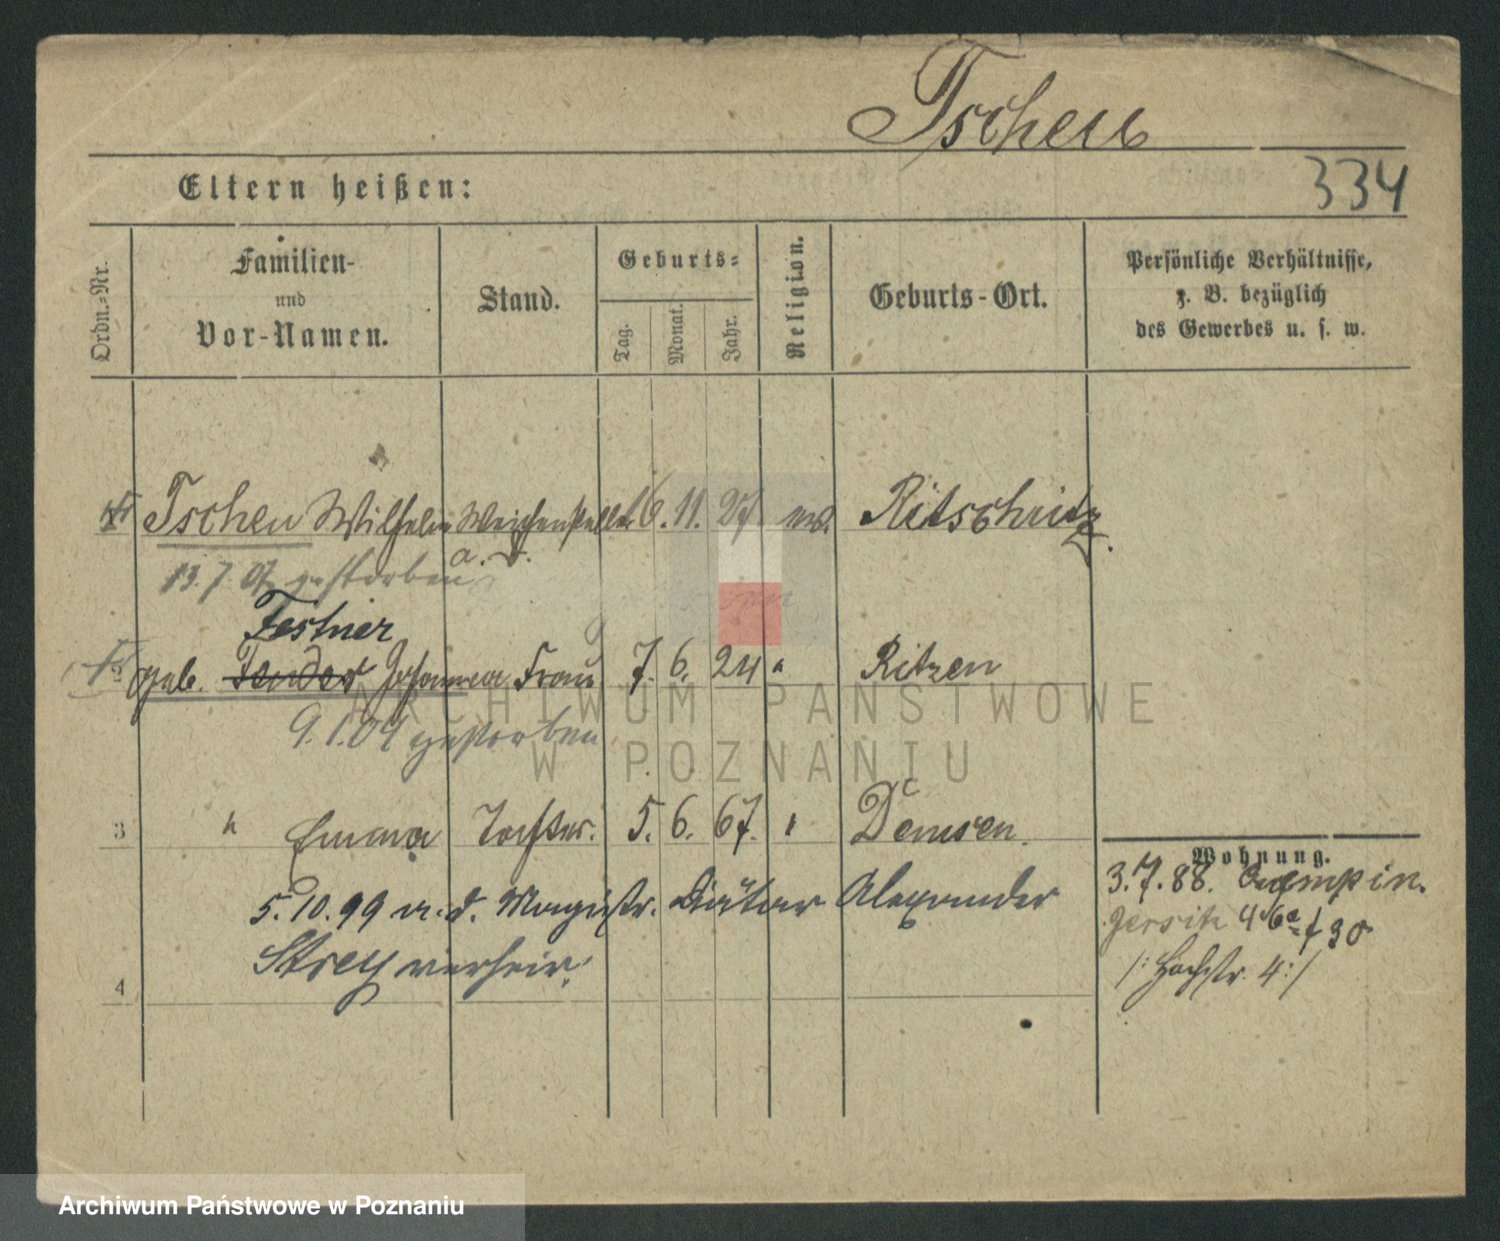 Tscheu
334
Eltern heißen:
Ordn.-Nr.
Familien-
und
Vor-Namen.
Stand.
Geburts-
Tag.
Monat.
Jahr.
Religion.
Geburts-Ort.
Persönliche Verhältnisse,
z. B. bezüglich
des Gewerbes u. s. w.
Tscheu Wilhelm Weichensteller 6. 11. 27.
a. D.
13. 7. 07 gestorben
Festner
geb. Tender Johanna Frau 7. 6. 24 " Ritzen
9. 1. 04 gestorben
3 " Emma Tochter. 5. 6. 67. " Demsen.
5. 10. 99 m. d. Magistr. Diätar Alexander
Strey verheir.
4
Wohnung.
3. 7. 88.
Jersitz
/: Hochstr. 4 :/
ARCHIWUM PAŃSTWOWE
W POZNANIU
Archiwum Państwowe w Poznaniu